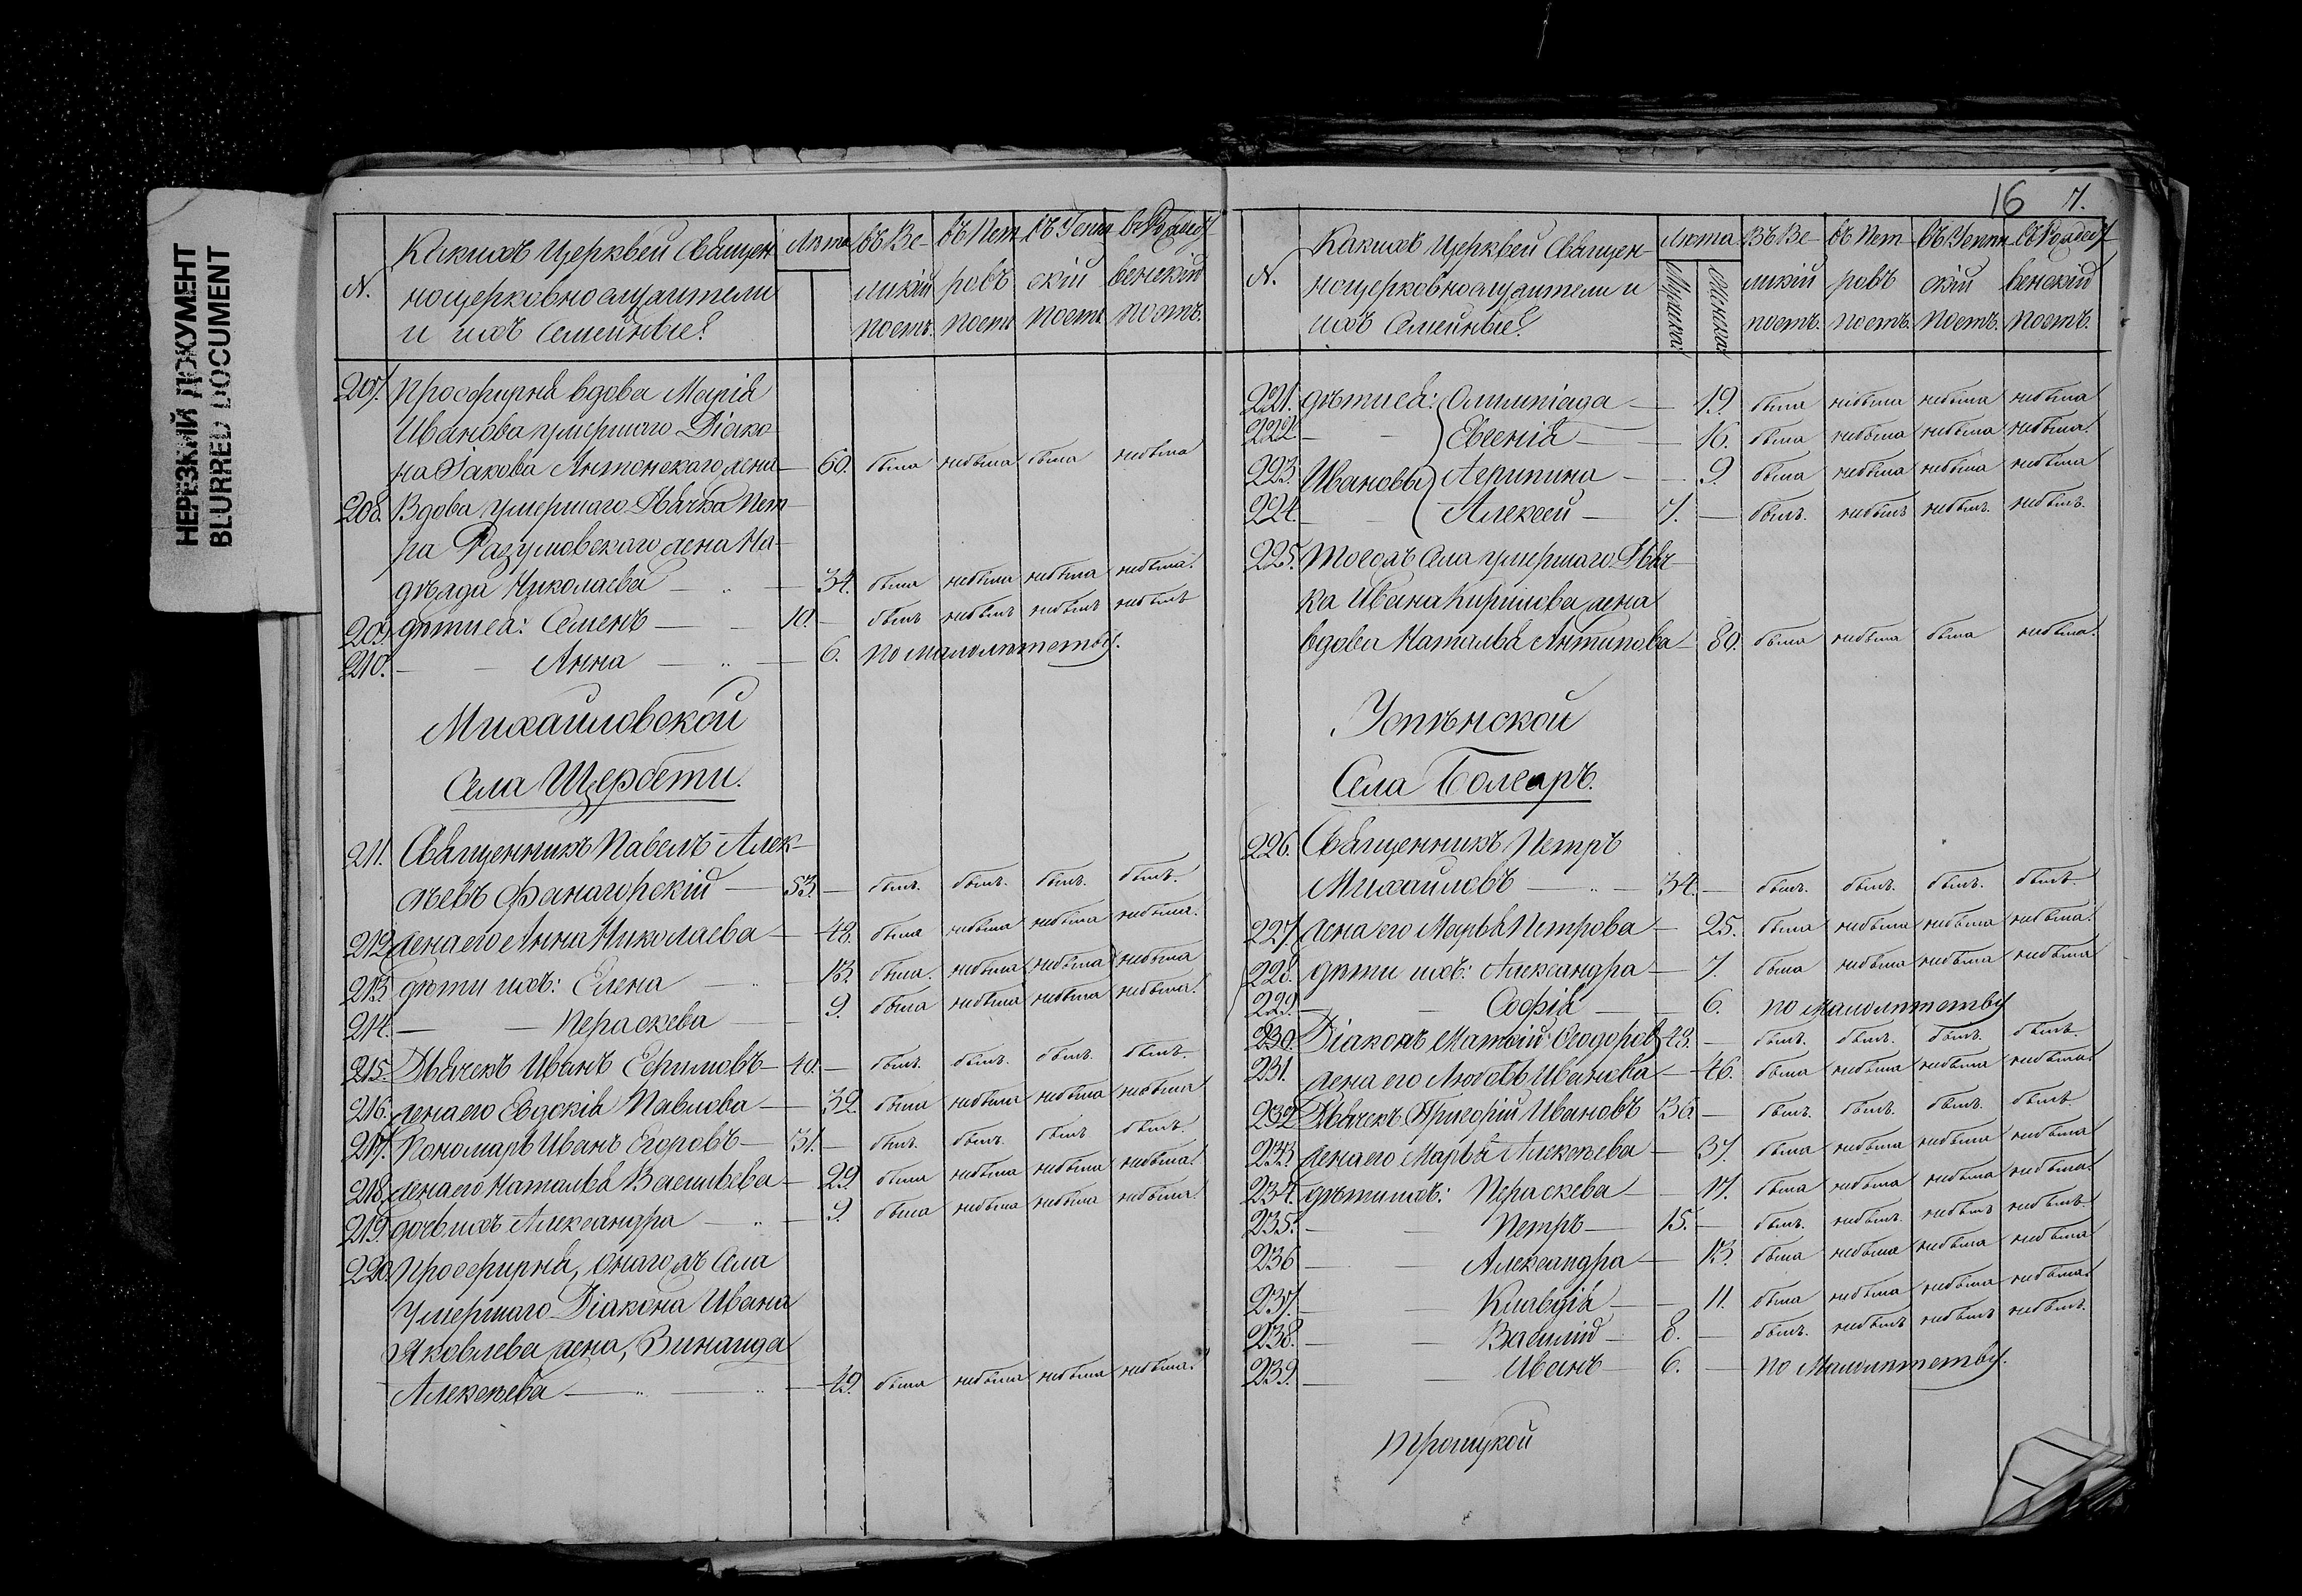 НЕРЕЗКИЙ ДОКУМЕНТ
BLURRED DOCUMENT
N.
Какихъ Церквей Священ
ноцерковнослужители
и ихъ Семейные?
Лѣта
въ Ве-
ликій
постъ.
въ Пет
ровъ
постъ
въ Успен
скій
постъ
въ Рождест
венскій
постъ.
207. Просфирня вдова Марія
Иванова умершаго Діако
на Іакова Антонскаго жена — 60. была небыла была небыла
208. Вдова умершаго Дьячка Пет
ра Разумовскаго жена На-
дежда Николаева — 34. была небыла небыла небыла.
209. дѣти ея: Семенъ — 10. — былъ небылъ небылъ небылъ
210. — Анна — 6. по малолѣтству.
Михайловской
Села Щербети.
211. Священникъ Павелъ Алек-
сѣевъ Фанагорскій — 53. — былъ. былъ. былъ. былъ.
212. жена его Анна Николаева — 48. была небыла небыла небыла.
213. дѣти ихъ: Елена — 13. была. небыла небыла небыла
214. — Пераскева — 9. была небыла небыла небыла.
215. Дьячекъ Иванъ Ефимовъ — 40. — былъ. былъ. былъ. былъ.
216. жена его Евдокія Павлова — 32. была небыла небыла небыла
217. Пономарь Иванъ Егоровъ — 31. — былъ. былъ. былъ былъ.
218. жена его Наталья Васильева — 29 была небыла небыла небыла.
219. дочь ихъ Александра — 9. была небыла небыла небыла.
220. Просфирня, онаго жъ Села
Умершаго Діакона Ивана
Яковлева жена, Зинаида
Алексѣева — 49. была небыла небыла небыла.
16 7.
N.
Какихъ Церквей Священ-
ноцерковнослужители и
ихъ Семейные?
Лѣта
Мужска:
Женска:
Въ Ве
ликій
постъ.
въ Пет
ровъ
постъ.
въ Успен
скій
постъ.
въ Рождест
венскій
постъ.
221. дѣти ея: Олимпіада — 19. была небыла небыла небыла
222. — Евгенія — 16. была небыла небыла небыла.
223. Ивановы Агрипина — 9. была небыла небыла небыла
224. — Алексей — 7. — былъ. небылъ небылъ. небылъ.
225. Тогожъ Села умершаго Дьяч
ка Ивана Кирилова жена
вдова Наталья Антипова — 80. была небыла была небыла.
Успѣнской
Села Болгаръ.
226. Священникъ Петръ
Михайловъ — 34. — былъ. былъ. былъ. былъ.
227. жена его Марья Петрова — 25. была небыла небыла небыла.
228. дѣти ихъ: Александра — 7. была небыла небыла небыла
229. — Софія — 6. по Малолѣтству
230. Діаконъ Матвій Ѳедоров 48. — былъ. былъ. былъ. былъ.
231. жена его Любовь Иванова — 46. была небыла небыла небыла.
232. Дьячекъ Григорій Ивановъ 36. — былъ. былъ. былъ. былъ.
233. жена его Марья Алексѣева — 37. была небыла небыла небыла
234. дѣти ихъ: Пераскева — 17. была небыла небыла небыла.
235. — Петръ — 15. — былъ. небылъ. небылъ небылъ.
236 — Александра — 13. была небыла небыла небыла
237. — Клавдія — 11. была небыла небыла небыла.
238. — Василій — 8. — былъ. небылъ небылъ небылъ.
239. — Иванъ — 6. — по Малолѣтству.
Троицкой